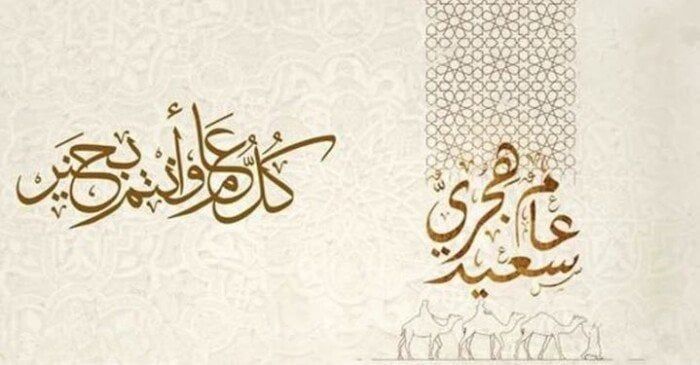 كُلُّ عَام وأنتم بخير
عام هجريّ
سعيد